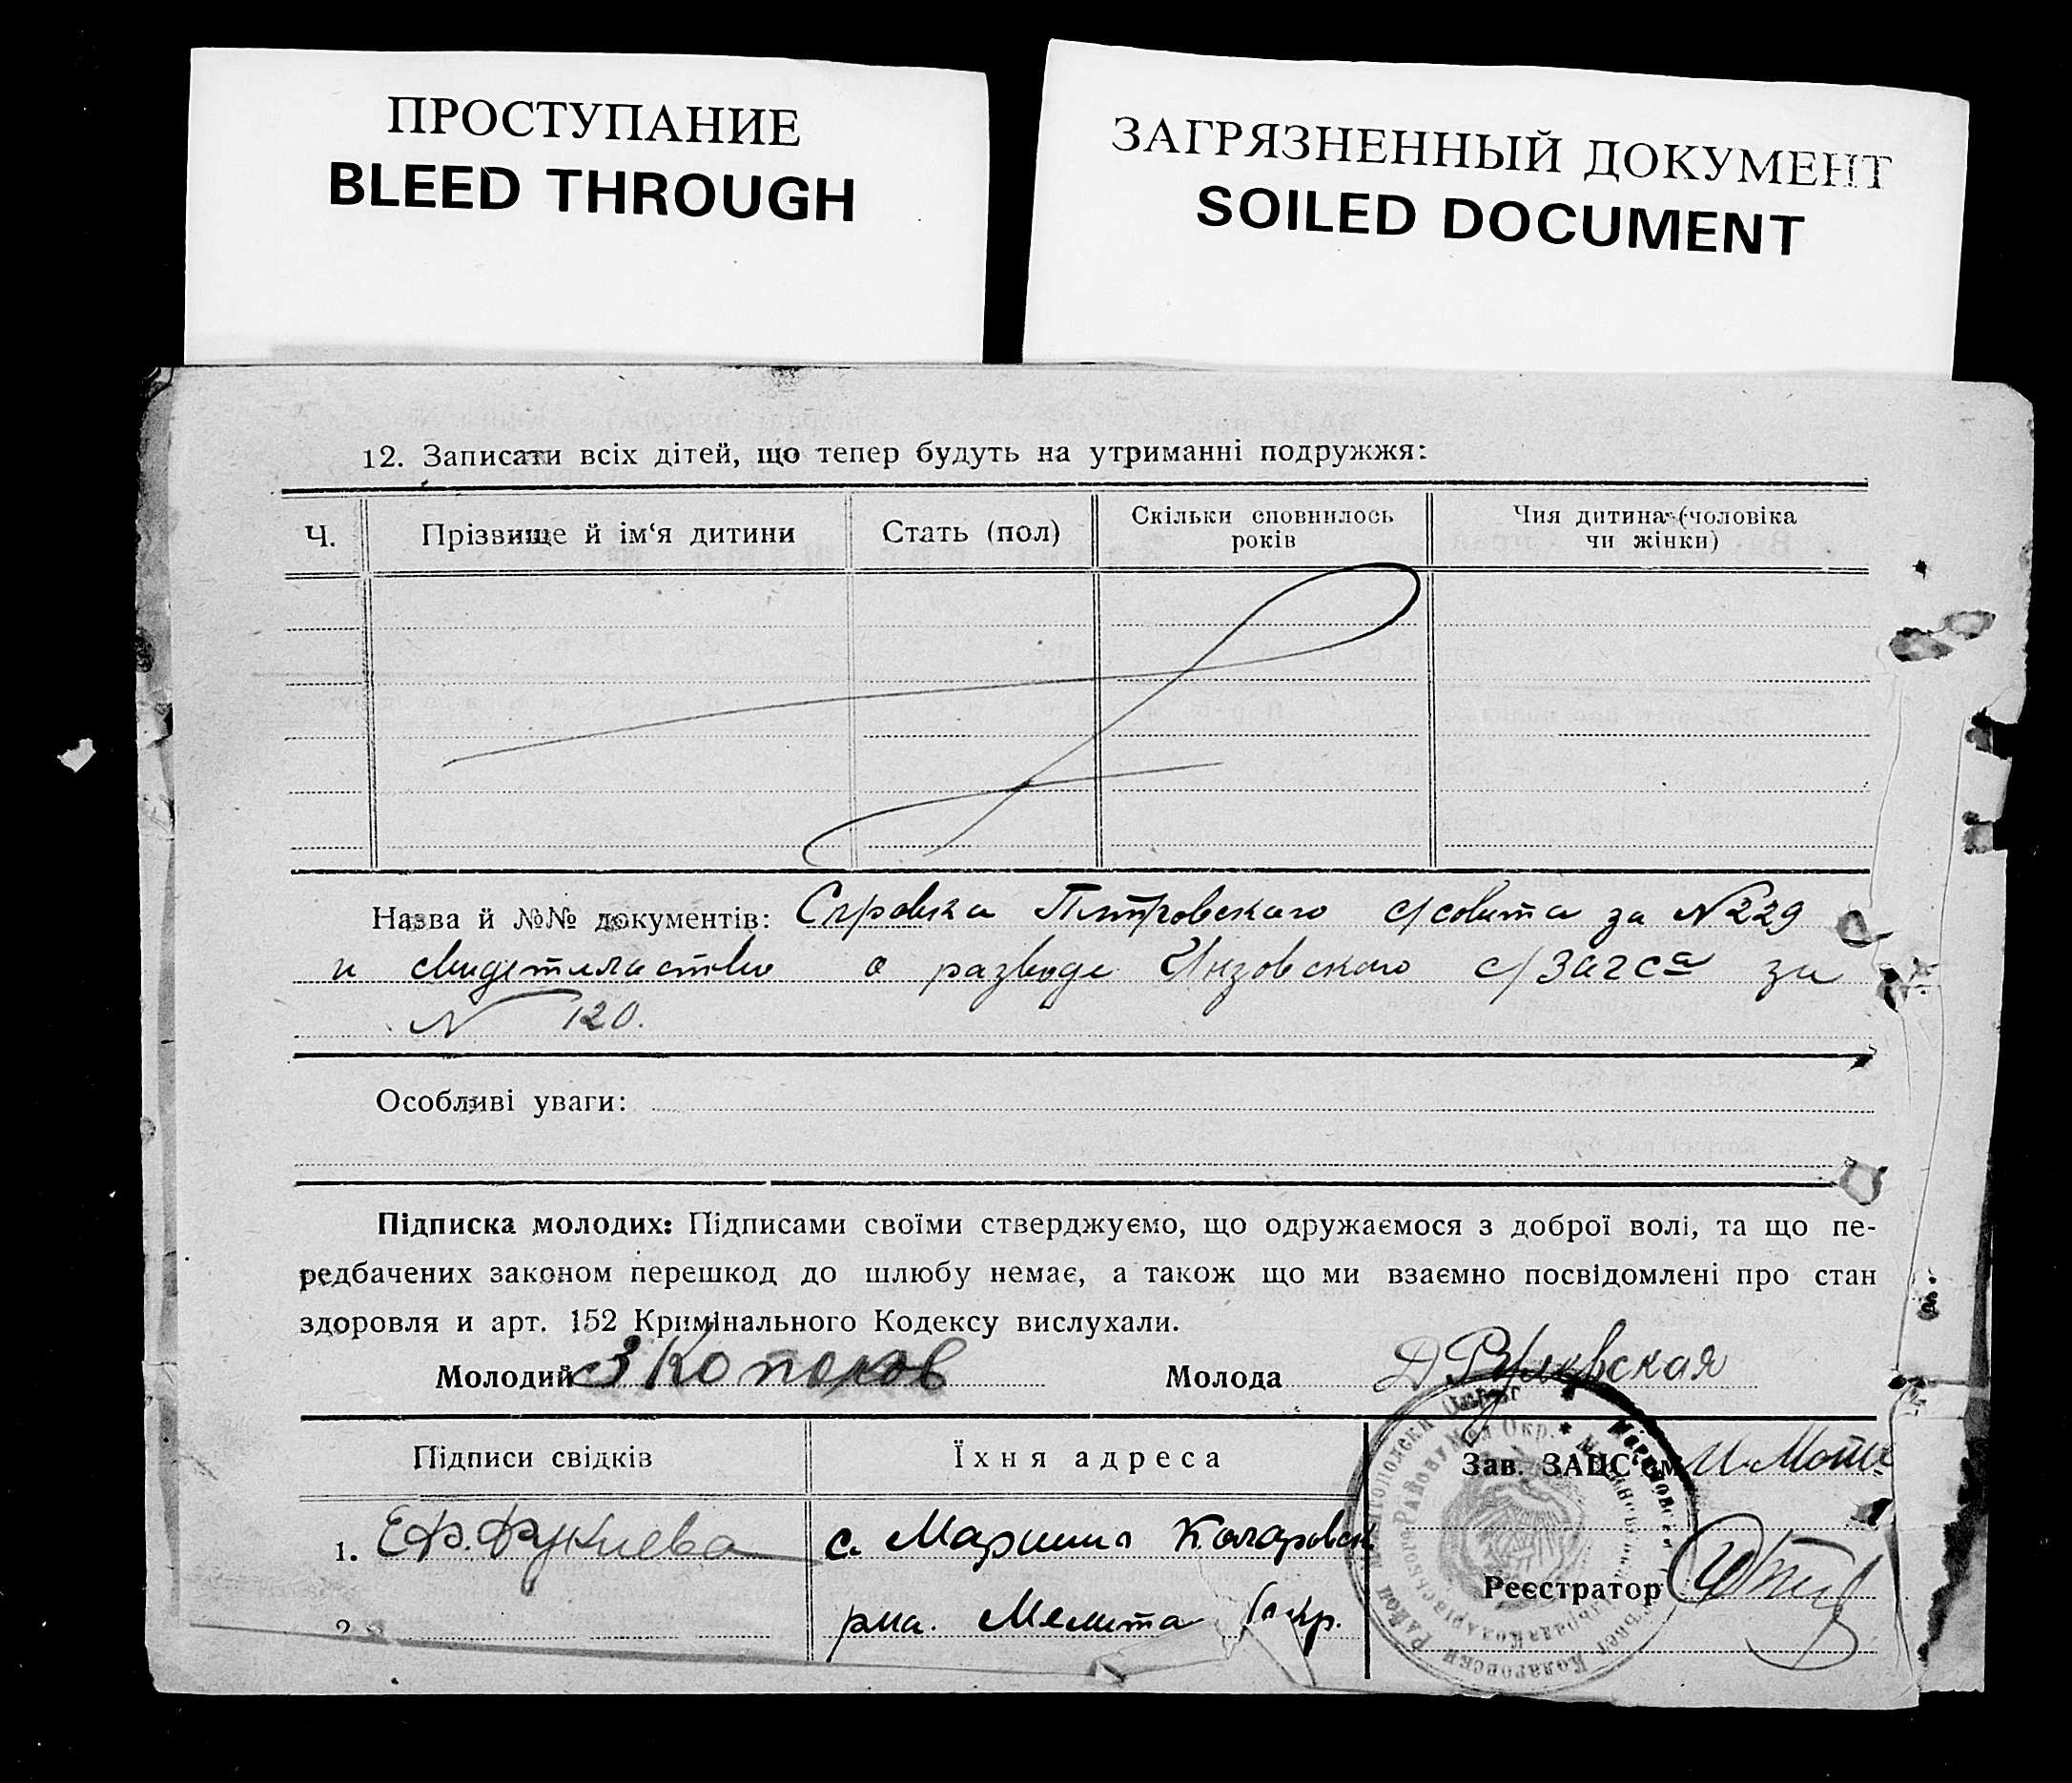 ПРОСТУПАНИЕ
BLEED THROUGH
ЗАГРЯЗНЕННЫЙ ДОКУМЕНТ
SOILED DOCUMENT
12. Записати всіх дітей, що тепер будуть на утриманні подружжя:
Ч.
Прізвище й ім‘я дитини
Стать (пол)
Скільки сповнилось
років
Чия дитина (чоловіка
чи жінки)
Назва й №№ документів: Справка Петровского с/совета за №229
и свидетельство о разводе Низовского с/загса за
N 120.
Особливі уваги:
Підписка молодих: Підписами своїми стверджуємо, що одружаємося з доброї волі, та що пе-
редбачених законом перешкод до шлюбу немає, а також що ми взаємно посвідомлені про стан
здоровля и арт. 152 Кримінального Кодексу вислухали.
Молодий
Молода
Підписи свідків
Їхня адреса
Зав. ЗАЦС‘ом
1.
с. Марино Коларовск
рна. Мелито окр.
Реєстратор
2